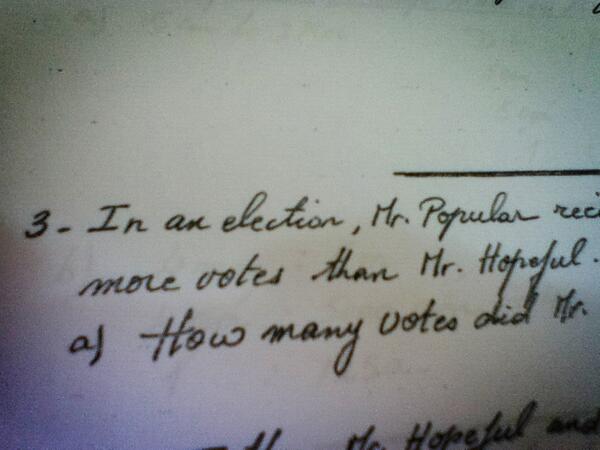 3- In an election, Mr. Popular reci
more votes than Mr. Hopeful.
a) How many votes did Mr.
Mr. Hopeful and